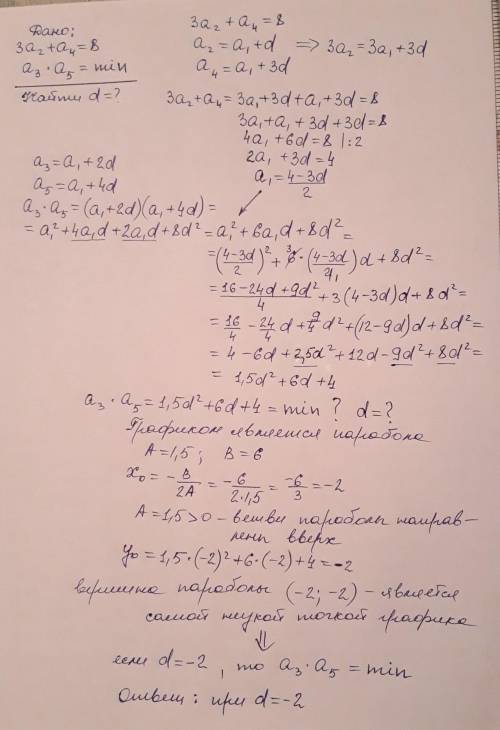 Дано:
3a₂+a₄=8
a₃·a₅=min
Найти d=?
3a₂+a₄=8
a₂=a₁+d ⇒ 3a₂=3a₁+3d
a₄=a₁+3d
3a₂+a₄=3a₁+3d+a₁+3d=8
3a₁+a₁+3d+3d=8
4a₁+6d=8 |:2
2a₁+3d=4
a₁=(4-3d)/2
a₃=a₁+2d
a₅=a₁+4d
a₃·a₅=(a₁+2d)(a₁+4d)=
=a₁²+4a₁d+2a₁d+8d²=a₁²+6a₁d+8d²=
=((4-3d)/2)²+6̸³·((4-3d)/2̸₁)d+8d²=
=(16-24d+9d²)/4+3(4-3d)d+8d²=
=16/4-24/4d+9/4d²+(12-9d)d+8d²=
=4-6d+2,5d²+12d-9d²+8d²=
=1,5d²+6d+4
a₃·a₅=1,5d²+6d+4=min? d=?
Графиком является парабола
A=1,5; B=6
x₀=-B/2A=-6/(2·1,5)=-6/3=-2
A=1,5>0-ветви параболы направ-
лены вверх
y₀=1,5·(-2)²+6·(-2)+4=-2
вершина параболы (-2;-2)-является
самой низкой точкой графика
⇓
если d=-2, то a₃·a₅=min
Ответ: при d=-2